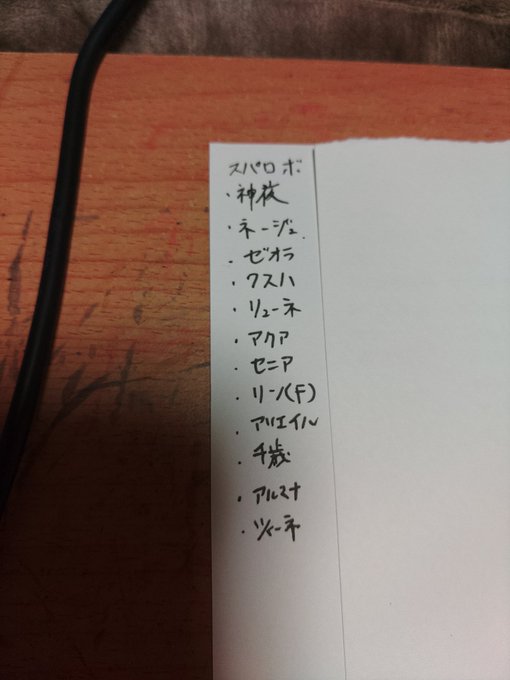 スパロボ
・神夜
・ネージュ
・ゼオラ
・クスハ
・リューネ
・アクア
・セニア
・リーン(F)
・アリエイル
・千歳
・アルミナ
・ツィーネ